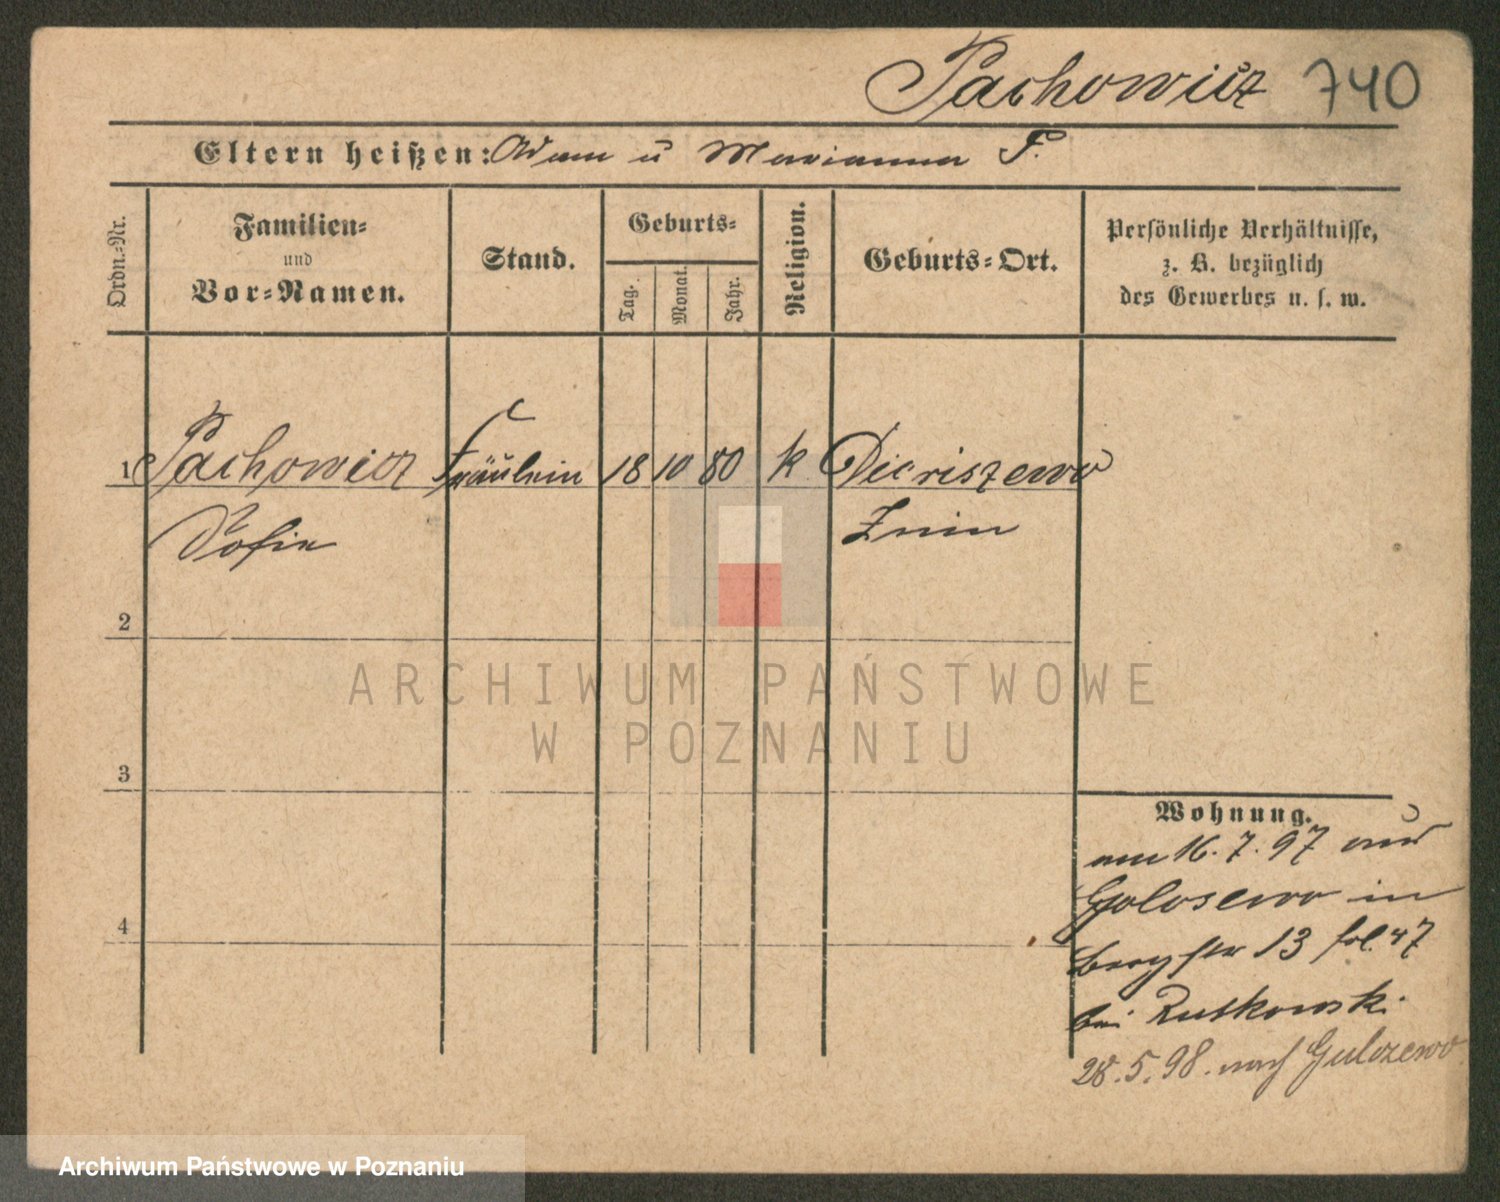 Pachowicz 740
Eltern heißen: Adam u Marianna P.
Ordn.-Nr.
Familien-
und
Vor-Namen.
Stand.
Geburts-
Tag.
Monat.
Jahr.
Religion.
Geburts-Ort.
Persönliche Verhältnisse,
z. B. bezüglich
des Gewerbes u. s. w.
1 Pachowicz Fräulein 18 10 80 k
Sofie Znin
2
3
4
Wohnung.
am 16. 7. 97 aus
in
Bergstr 13 fol. 47
bei Rutkowski.
28. 5. 98. nach
ARCHIWUM PAŃSTWOWE
W POZNANIU
Archiwum Państwowe w Poznaniu